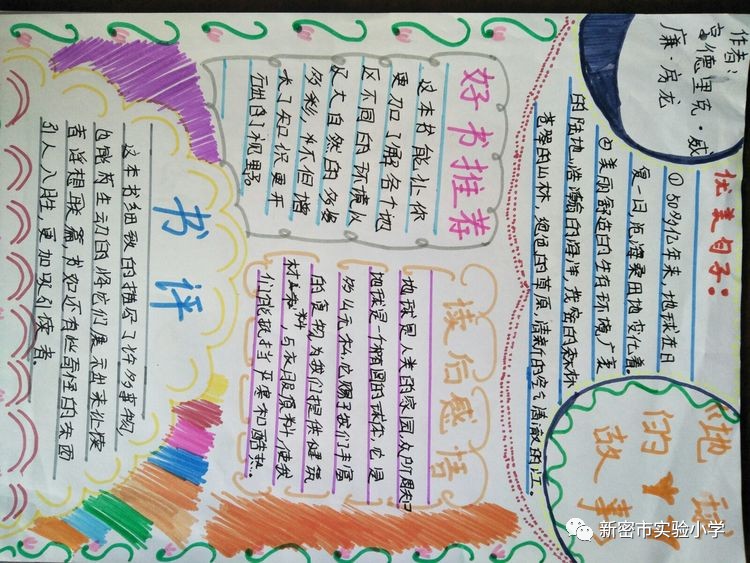 作者:
亨德里克·威
廉·房龙
《地球
的
故事》
优美句子:
①50多亿年来,地球在日
复一日,沧海桑田地变化着。
②美丽舒适的生存环境,广袤
的陆地,浩瀚的海洋,茂密的森林,
苍翠的山林,的草原,清新的空气,清澈的江。
好书推荐
这本书能让你
更加了解各个地
区不同的环境以
及大自然的多姿
多彩,不但增
长了知识更开
阔了视野。
读后感悟
地球是人类的家园,众所周知
地球是一个椭圆的球体,它是
我们丰富
的食物为我们提供建筑
材料,与衣服原料,使我
们能抵挡严寒和酷热。
书评
这本书细致的描写了许多事物,
也能够生动的将它们展示出来让读
者浮想联篇,书如还有些奇怪的东西
引人入胜,更加吸引读者。
新密市实验小学